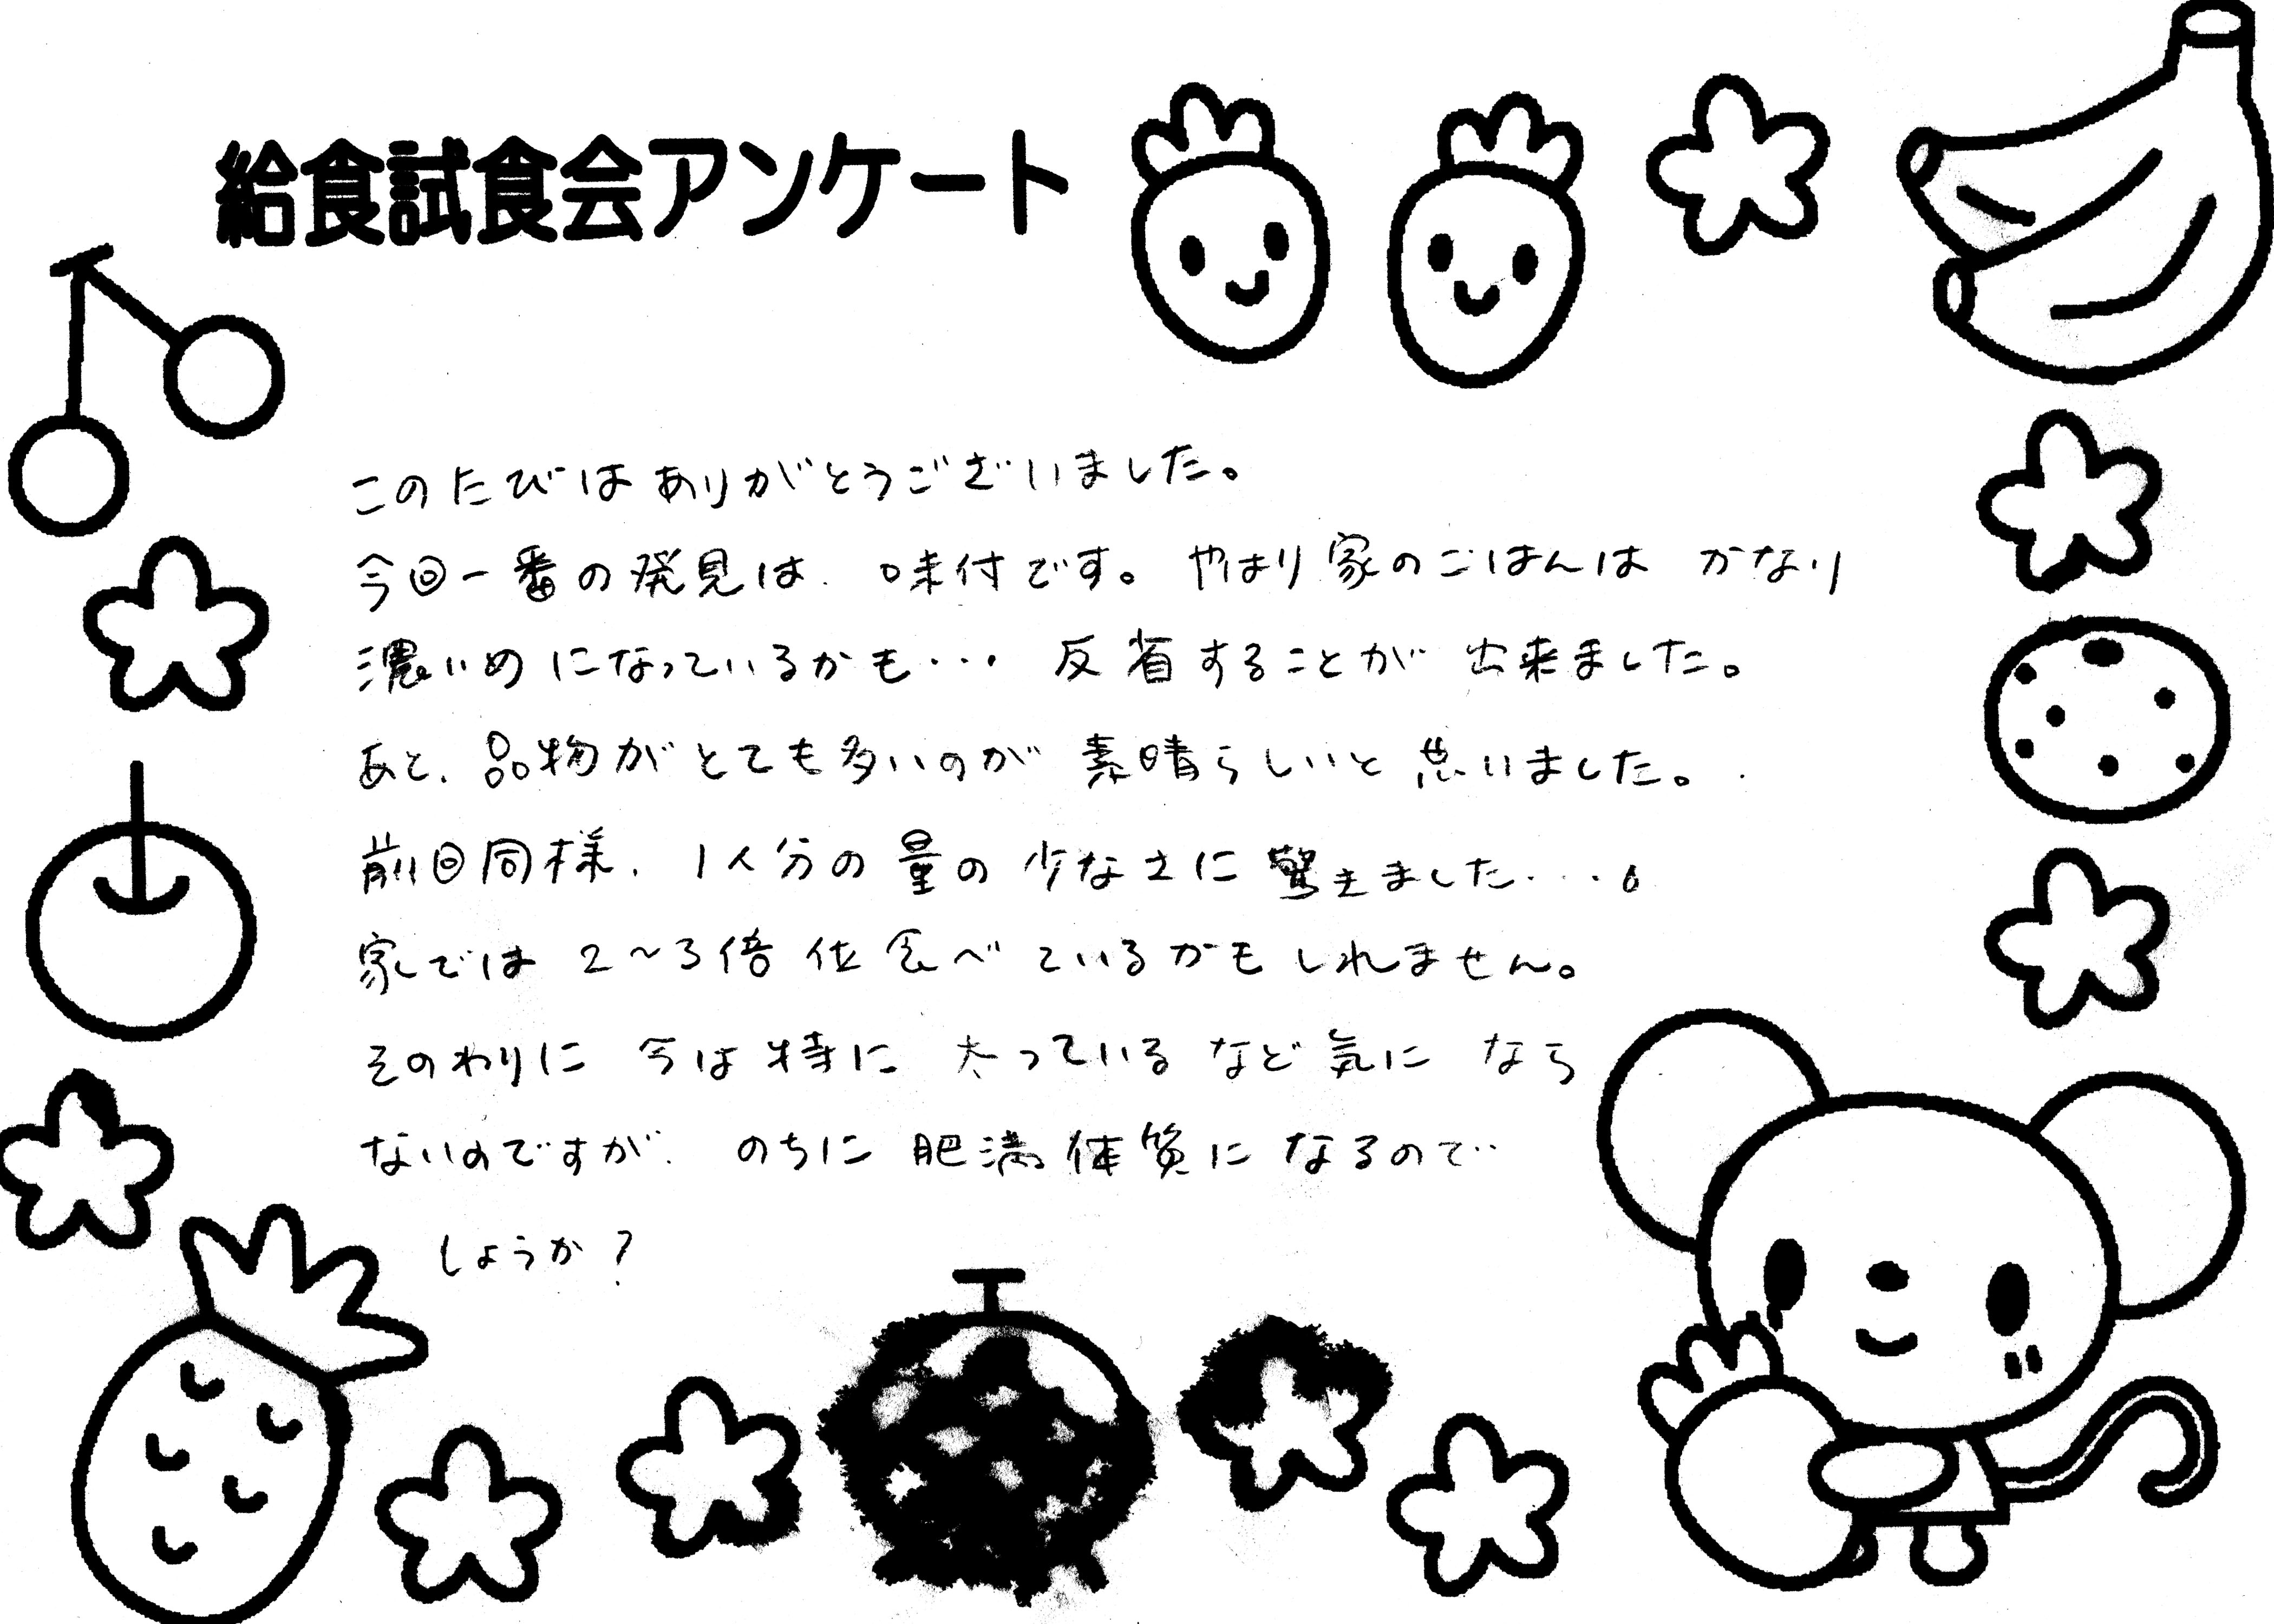 給食試食会アンケート
このたびはありがとうございました。
今回一番の発見は、味付です。やはり家のごはんは かなり
濃いめになっているかも・・・ 反省することが 出来ました。
あと、品物がとても多いのが 素晴らしいと思いました。
前回同様、1人分の量の少なさに驚きました・・・。
家では 2～3倍位食べているかもしれません。
そのわりに 今は特に 太っているなど気に なら
ないのですが、のちに 肥満体質に なるので
しょうか？